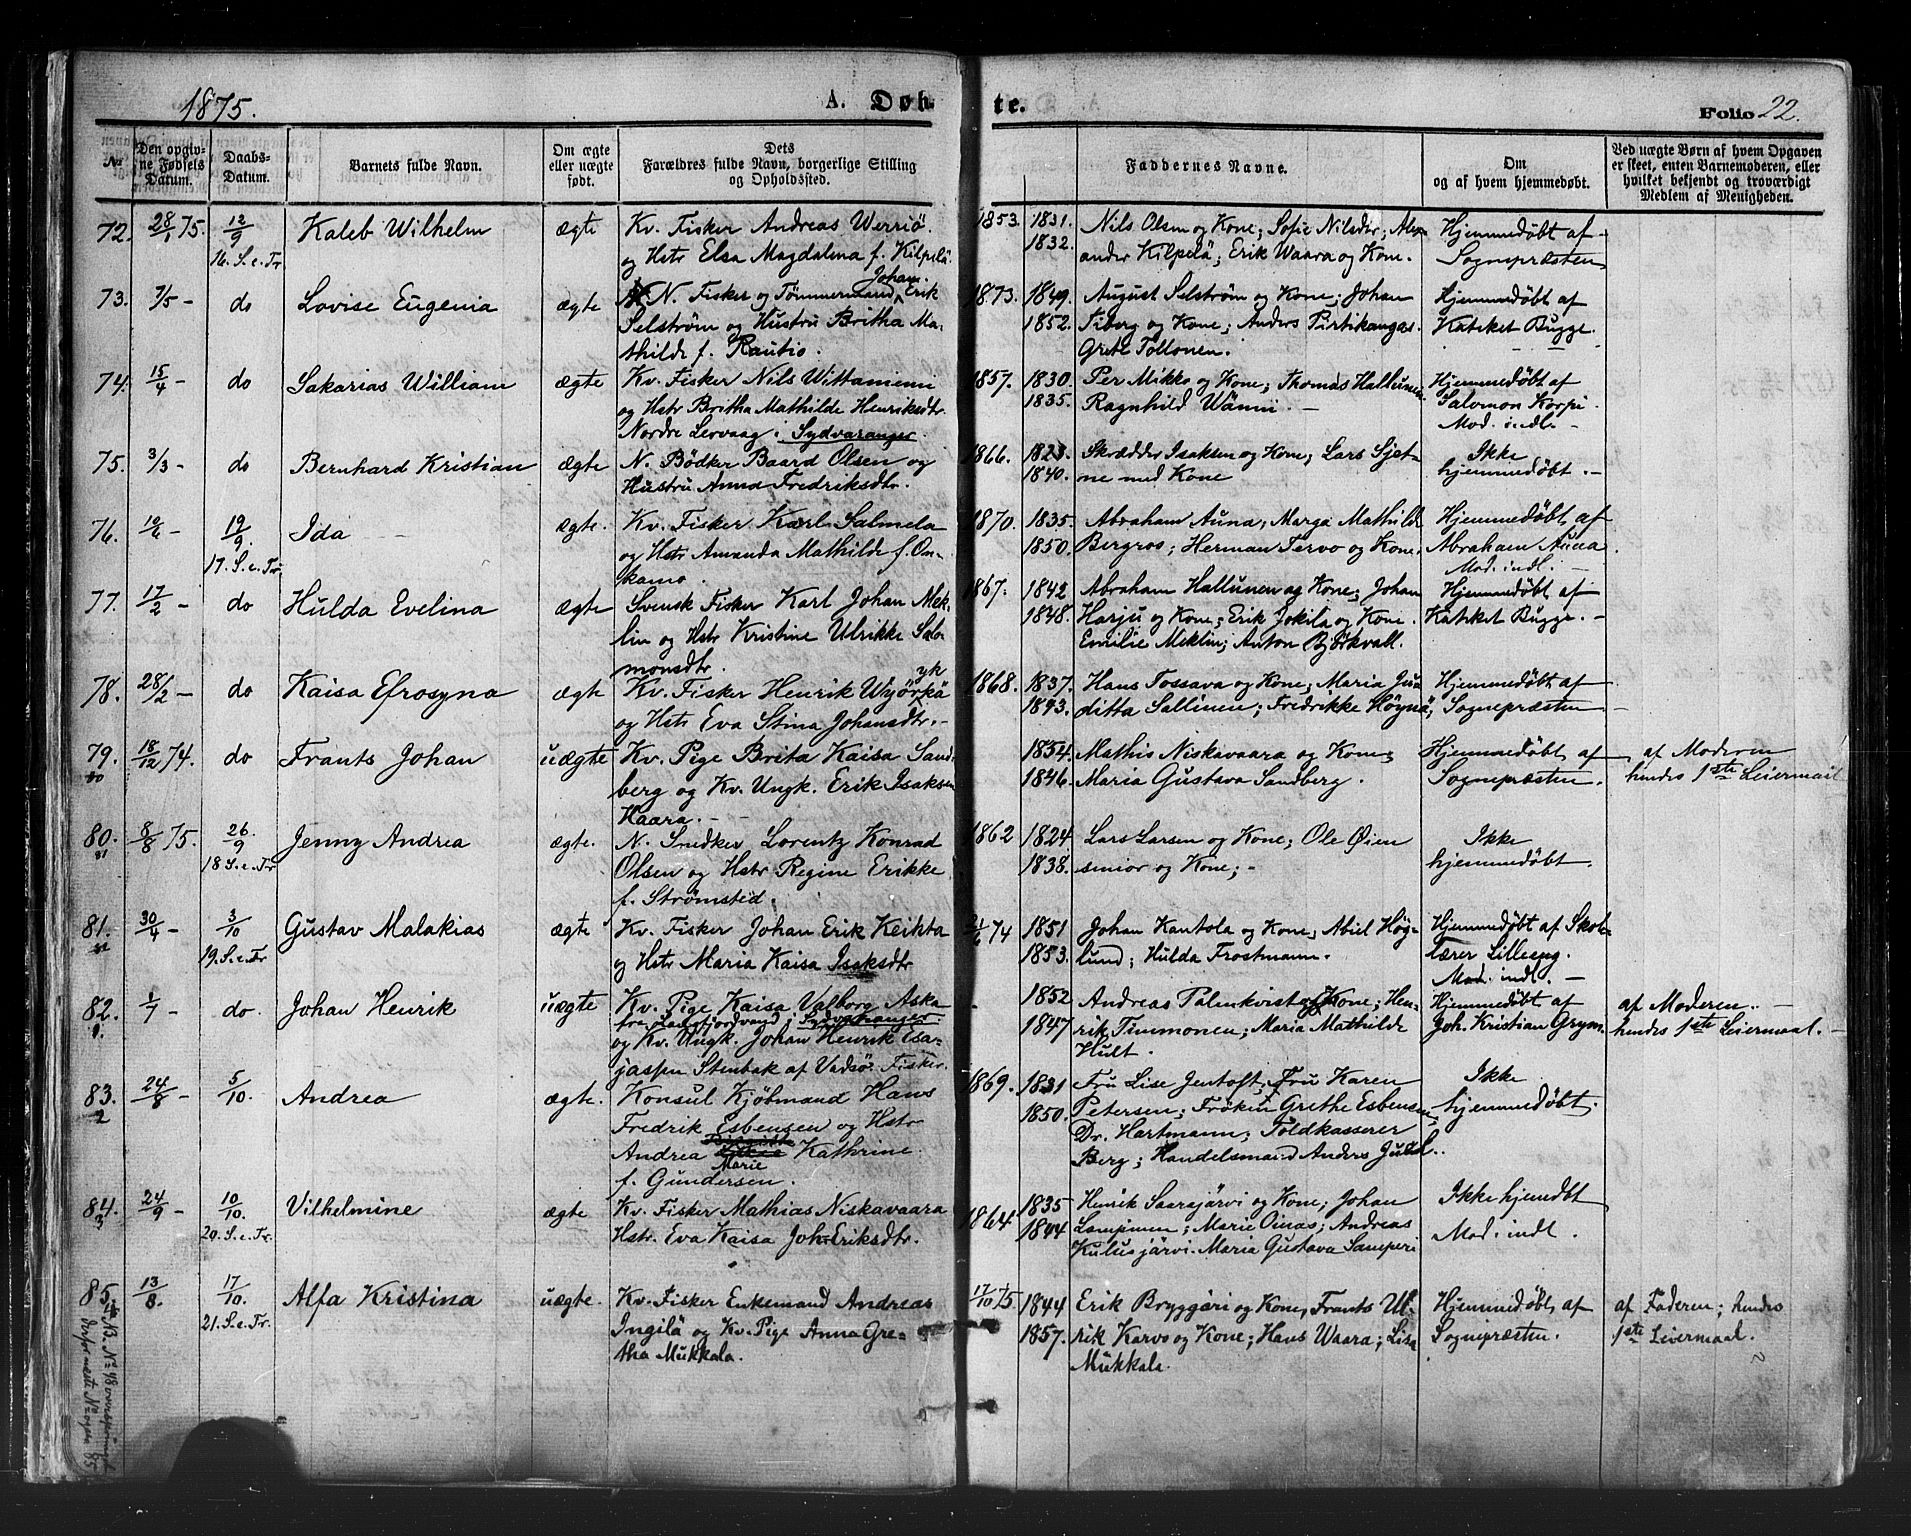 1875.
A. Døb
te.
Folio 22.
No
Den opgiv-
ne Fødsels
Datum.
Daabs-
Datum.
Barnets fulde Navn.
Om ægte
eller uægte
født.
Dets
Forældres fulde Navn, borgerlige Stilling
og Opholdssted.
Faddernes Navne.
Om
og af hvem hjemmedøbt.
Ved uægte Børn af hvem Opgaven
er skeet, enten Barnemoderen, eller
hvilket bekjendt og troværdigt
Medlem af Menigheden.
72. 28/1 75. 12/9 Kaleb Wilhelm ægte Kv. Fisker Andreas Werriö 1853. 1831. Nils Olsen og Kone; Sofie Nilsdtr; Alex- Hjemmedøbt af
16. S. e. Tr. og Hstr Elsa Magdalena f. Kilpelä 1832. ander Kilpelä; Erik Waara og Kone. Sognepræsten
Johan
73. 7/5 - do Lovise Eugenia ægte N. Fisker og Tømmermand Erik 1873. 1849. August Selström og Kone; Johan Hjemmedøbt af
Selström og Hustru Britha Ma- 1852. Tiberg og Kone; Anders Pirtikangas. Kateket Bugge.
thilde f. Rautio. Grete Tollonen.
74. 15/4 - do Sakarias William ægte Kv. Fisker Nils Wittaniemi 1857. 1830. Per Mikko og Kone; Thomas Hallunen Hjemmedøbt af
og Hstr Britha Mathilde Henriksdtr. 1835. Ragnhild Wännii. - Salomon Korpi.
Nordre Lervaag i Sydvaranger. Mod. indl. -
75. 3/3 - do Bernhard Kristian ægte N. Bödker Baard Olsen og 1866. 1823. Skrædder Isaksen og Kone; Lars Sjet- Ikke
Hustru Anna Fredriksdtr. 1840. ne med Kone hjemmedøbt. -
76. 10/6 - 19/9. Ida ægte. Kv. Fisker Karl Salmela 1870. 1835. Abraham Auna; Marga Mathilde Hjemmedøbt af
17. S. e. Tr. og Hstr Amanda Mathilde f. On- 1850. Bergros; Herman Tervo og Kone. Abraham Auna.
kamo. Mod. indl. -
77. 17/2 - do Hulda Evelina ægte Svensk Fisker Karl Johan Mek- 1867. 1842 Abraham Hallunen og Kone; Johan Hjemmedøbt af
lin og Hstr Kristine Ulrikke Salo- 1848. Harju og Kone; Erik Jokila og Kone. Kateket Bugge. -
monsdtr. Emilie Meklin; Anton Björkvall.
yk
78. 28/2 - do Kaisa Efrosyna ægte Kv. Fisker Henrik Wyörkä 1868. 1837. Hans Tossava og Kone; Maria Jua Hjemmedøbt af
og Hstr Eva Stina Johansdtr. - 1843. ditta Sallinen; Fredrikke Höynä; Sognepræsten -
79. 18/12 74. do Frants Johan uægte Kv. Pige Brita Kaisa Sand- 1854. Mathis Niskavaara og Kone; Hjemmedøbt af af Moderen
80 berg og Kv. Ungk. Erik Isaksen 1846. Maria Gustava Sandberg. Sognepræsten. hendes 1ste Leiermaal
Haara. -
80. 8/8 75. 26/9 Jenny Andrea ægte. N. Snedker Lorentz Konrad 1862 1824 Lars Larsen og Kone; Ole Øien Ikke
81 18 S. e. Tr Olsen og Hstr Regine Erikke 1838. senior og Kone; - hjemmedøbt.
f. Strømsted.
81. 30/4 - 3/10 Gustav Malakias ægte Kv. Fisker Johan Erik Keikta 74 1851 Johan Kantola og Kone; Abiel Hög- Hjemmedøbt af Skol-
82 19. S. e. Tr og Hstr Maria Kaisa Isaksdtr 1853. lund; Hulda Frostmann. lærer Lilleeng.
Mod. indl. -
82. 1/7 - do. Johan Henrik uægte Kv. Pige Kaisa Valborg Aska - 1852 Andreas Palmkvist og Kone; Hen- Hjemmedøbt af af Moderen. -
Sydvaranger
og Kv. Ungk. Johan Henrik Esa- 1847 rik Timmonen; Maria Mathilde Joh. Kristian Grym- hendes 1ste Leiermaal. -
jasen Stenbak af Vadsø. Fisker. Hult.
83. 24/8 - 5/10. Andrea ægte. Konsul Kjöbmand Hans 1869. 1831 Fru Lise Jentoft; Fru Karen Ikke
2 Fredrik Esbensen og Hstr 1850. Petersen; Fröken Grethe Esbensen, hjemmedøbt.
Andrea Kathrine Dr. Hartmann; Toldkasserer
Marie
f. Gundersen. Berg; Handelsmand Anders Juhl.
84. 24/9 - 10/10. Vilhelmine ægte Kv. Fisker Mathias Niskavaara 1864 1835 Henrik Saarajärvi og Kone; Johan Ikke hjemdøbt
3 20. S. e. Tr. Hstr. Eva Kaisa Joh Eriksdtr. 1844 Lampinen; Marie Oinas; Andreas Mod. indl.
Kulusjärvi. Maria Gustava Samperi
85. 13/8. 17/10. Alfa Kristina uægte. Kv. Fisker Enkemand Andreas 17/10 75 1844 Erik Bryggäri og Kone, Frants Ul- Hjemmedøbt af af Faderen; hendes
21. S. e. Tr. Ingilä og Kv. Pige Anna Gre- 1857. rik Karvo og Kone; Hans Waara; Lisa Sognepræsten. 1ste Leiermaal.
tha Mukkala. Mukkala.
NB. No 48 oversprunget
derfor næste No ogsaa 85